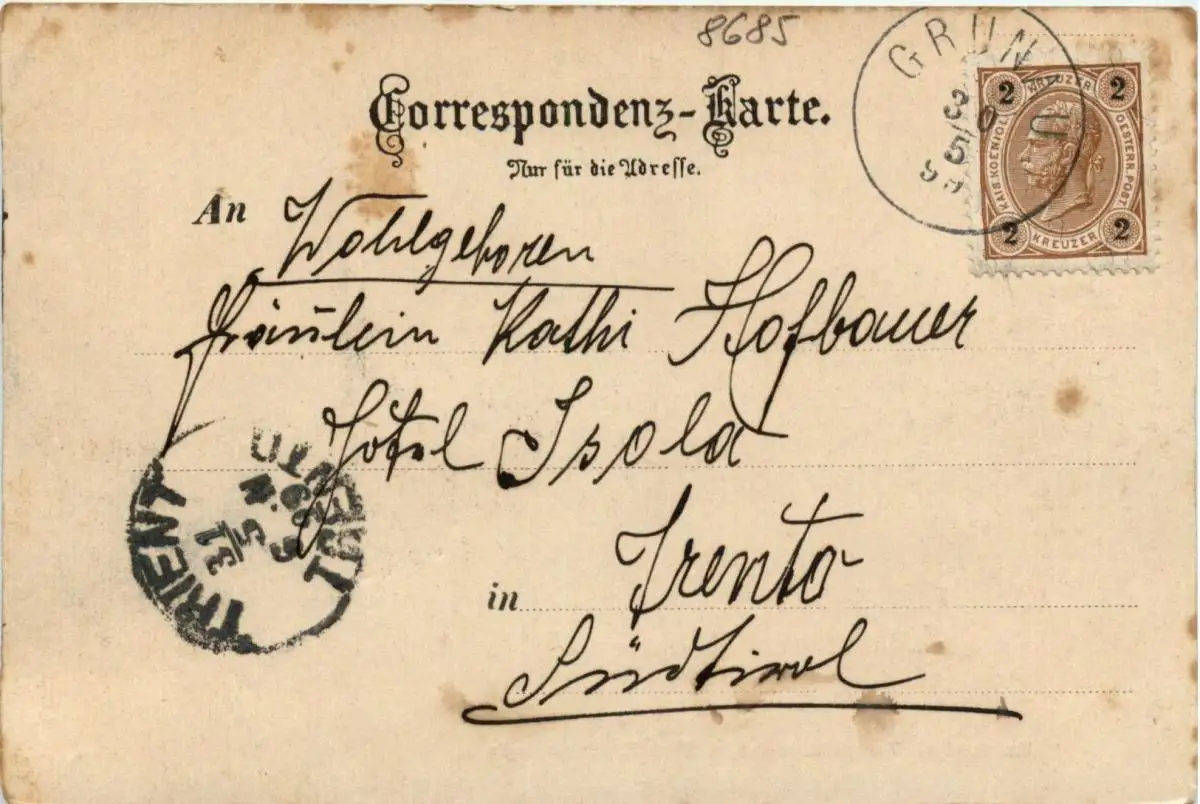 8685
Correspondenz-Karte.
Nur für die Adresse.
GRÜN
30/5
99
2 KREUZER 2
KAIS. KOENIGL. OESTERR. POST.
2 KREUZER 2
An Wohlgeboren
Fräulein Kathi Hofbauer
Hotel Isola
in Trento
Südtirol
TRIENT
TRENTO
31
5
99